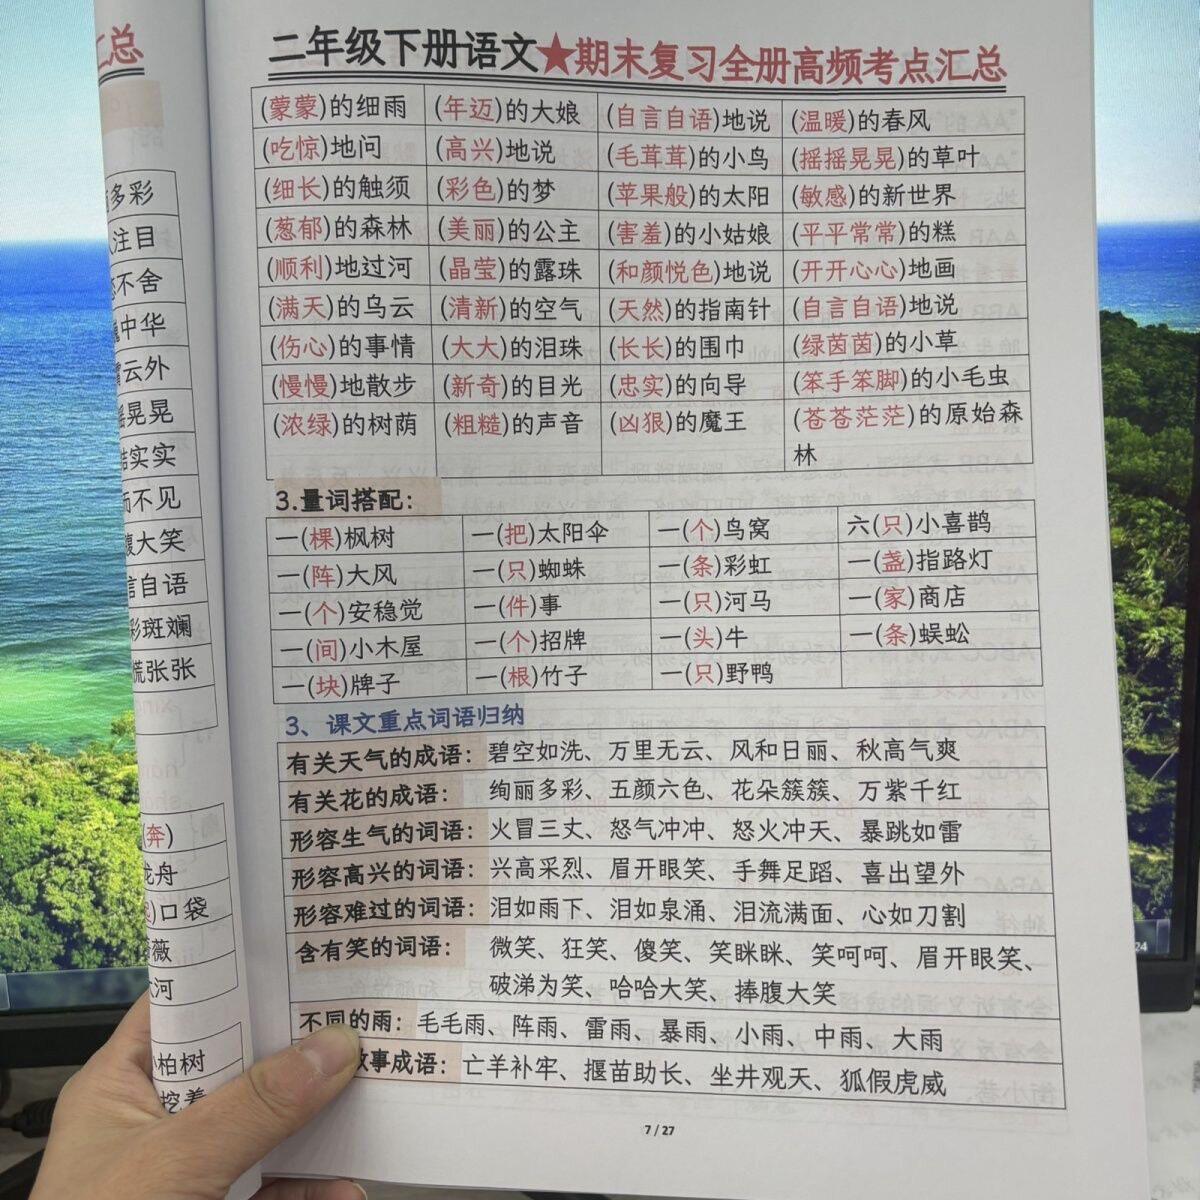 汇总
多彩
注目
不舍
中华
云外
晃晃
实实
而不见
腹大笑
言自语
彩斑斓
慌张张
(奔)
龙舟
口袋
薇
河
柏树
挖着
二年级下册语文★期末复习全册高频考点汇总
(蒙蒙)的细雨 (年迈)的大娘 (自言自语)地说 (温暖)的春风
(吃惊)地问 (高兴)地说 (毛茸茸)的小鸟 (摇摇晃晃)的草叶
(细长)的触须 (彩色)的梦 (苹果般)的太阳 (敏感)的新世界
(葱郁)的森林 (美丽)的公主 (害羞)的小姑娘 (平平常常)的糕
(顺利)地过河 (晶莹)的露珠 (和颜悦色)地说 (开开心心)地画
(满天)的乌云 (清新)的空气 (天然)的指南针 (自言自语)地说
(伤心)的事情 (大大)的泪珠 (长长)的围巾 (绿茵茵)的小草
(慢慢)地散步 (新奇)的目光 (忠实)的向导 (笨手笨脚)的小毛虫
(浓绿)的树荫 (粗糙)的声音 (凶狠)的魔王 (苍苍茫茫)的原始森
林
3.量词搭配：
一(棵)枫树 一(把)太阳伞 一(个)鸟窝 六(只)小喜鹊
一(阵)大风 一(只)蜘蛛 一(条)彩虹 一(盏)指路灯
一(个)安稳觉 一(件)事 一(只)河马 一(家)商店
一(间)小木屋 一(个)招牌 一(头)牛 一(条)蜈蚣
一(块)牌子 一(根)竹子 一(只)野鸭
3、课文重点词语归纳
有关天气的成语：碧空如洗、万里无云、风和日丽、秋高气爽
有关花的成语： 绚丽多彩、五颜六色、花朵簇簇、万紫千红
形容生气的词语：火冒三丈、怒气冲冲、怒火冲天、暴跳如雷
形容高兴的词语：兴高采烈、眉开眼笑、手舞足蹈、喜出望外
形容难过的词语：泪如雨下、泪如泉涌、泪流满面、心如刀割
含有笑的词语： 微笑、狂笑、傻笑、笑眯眯、笑呵呵、眉开眼笑、
破涕为笑、哈哈大笑、捧腹大笑
不同的雨：毛毛雨、阵雨、雷雨、暴雨、小雨、中雨、大雨
故事成语：亡羊补牢、揠苗助长、坐井观天、狐假虎威
7 / 27